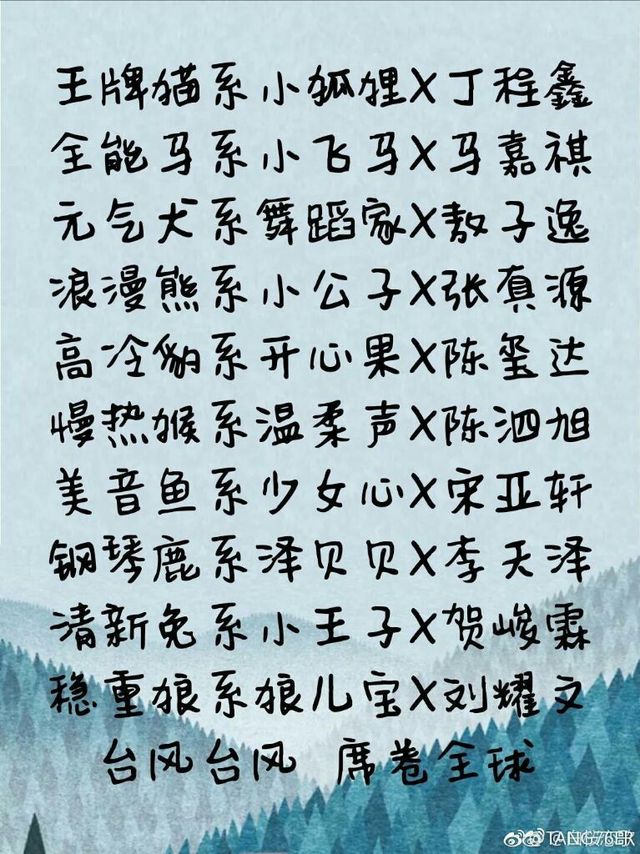 王牌猫系小狐狸X丁程鑫
全能马系小飞马X马嘉祺
元气犬系舞蹈家X敖子逸
浪漫熊系小公子X张真源
高冷豹系开心果X陈玺达
慢热猴系温柔声X陈泗旭
美音鱼系少女心X宋亚轩
钢琴鹿系泽贝贝X李天泽
清新兔系小王子X贺峻霖
稳重狼系狼儿宝X刘耀文
台风台风 席卷全球